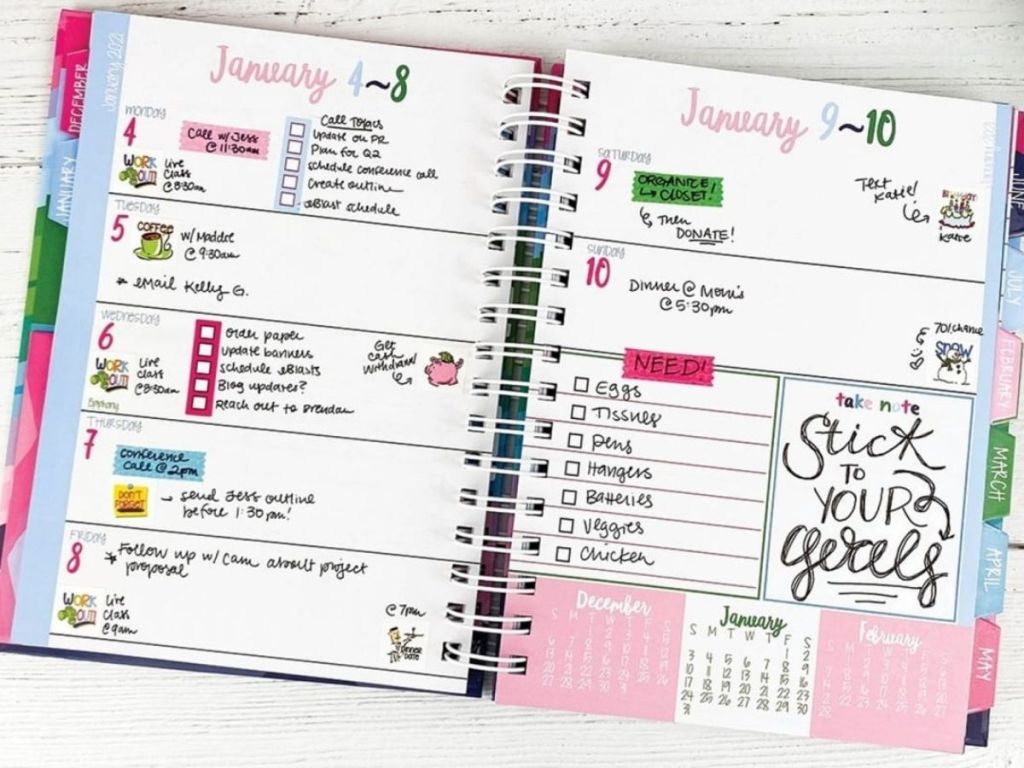 DECEMBER
JANUARY
January 2021
January 4~8
MONDAY
4
Call w/ Jess
@ 11:30am
WORK
OUT
Live
Class
@ 8:30am
Call Topics
Update on PR
Plan for Q2
schedule conference call
Create outline
eBlast schedule
TUESDAY
5
COFFEE
w/ Maddie
@ 9:30am
* eMail Kelly G.
WEDNESDAY
6
WORK
OUT
Live
Class
@ 8:30am
Epiphany
order paper
update banners
schedule eBlasts
Blog updates?
Reach out to Brendan
Get
cash
Withdrawal
THURSDAY
7
Conference
Call @ 2pm
DON'T
FORGET
→ send Jess outline
before 1:30pm!
FRIDAY
8
* Follow up w/ Cam about project
proposal
WORK
OUT
Live
Class
@ 9am
@ 7pm
DINNER
DATE
January 9~10
SATURDAY
9
ORGANIZE!
↳ CLOSET!
↳ Then
DONATE!
Text
Katie!
BIRTHDAY
Katie
SUNDAY
10
Dinner @ Mom's
@ 5:30pm
70% chance
SNOW
NEED!
Eggs
Tissues
Pens
Hangers
Batteries
Veggies
Chicken
take note
Stick
TO
YOUR
goals
December
S M T W T F S
1 2 3 4 5
6 7 8 9 10 11 12
13 14 15 16 17 18 19
20 21 22 23 24 25 26
27 28 29 30 31
January
S M T W T F S
1 2
3 4 5 6 7 8 9
10 11 12 13 14 15 16
17 18 19 20 21 22 23
24 25 26 27 28 29 30
31
February
S M T W T F S
1 2 3 4 5 6
7 8 9 10 11 12 13
14 15 16 17 18 19 20
21 22 23 24 25 26 27
28
JUNE
JULY
FEBRUARY
MARCH
APRIL
MAY